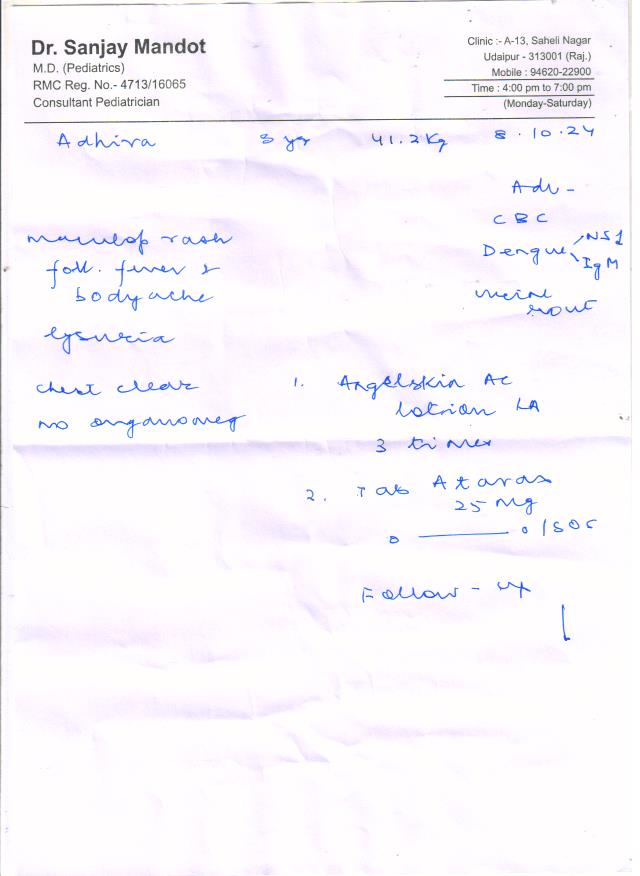 Dr. Sanjay Mandot
M.D. (Pediatrics)
RMC Reg. No.- 4713/16065
Consultant Pediatrician
Clinic :- A-13, Saheli Nagar
Udaipur - 313001 (Raj.)
Mobile : 94620-22900
Time : 4:00 pm to 7:00 pm
(Monday-Saturday)
Adhira yr 41.2 Kg 8.10.24
Adv -
CBC
Dengue NS1
IgM
urine
rout
maculop rash
foll. fever &
bodyache
chest clear
no organomeg
1. Angelskin AC
lotion LA
3 times
2. Tab Atarax
25 mg
0 — 0 / SOS
Follow - up